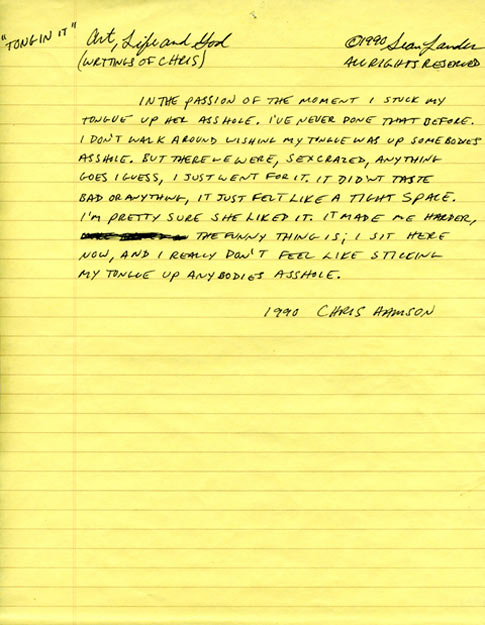 "TONGIN IT" Art, Life and God ©1990 Sean Landers
(WRITINGS OF CHRIS) ALL RIGHTS RESERVED
IN THE PASSION OF THE MOMENT I STUCK MY
TONGUE UP HER ASSHOLE. I'VE NEVER DONE THAT BEFORE.
I DON'T WALK AROUND WISHING MY TONGUE WAS UP SOMEBODIES
ASSHOLE. BUT THERE WE WERE, SEXCRAZED, ANYTHING
GOES I GUESS, I JUST WENT FOR IT. IT DID'NT TASTE
BAD OR ANYTHING, IT JUST FELT LIKE A TIGHT SPACE.
I'M PRETTY SURE SHE LIKED IT. IT MADE ME HARDER,
THE FUNNY THING IS; I SIT HERE
NOW, AND I REALLY DON'T FEEL LIKE STICKING
MY TONGUE UP ANYBODIES ASSHOLE.
1990 CHRIS HAMSON